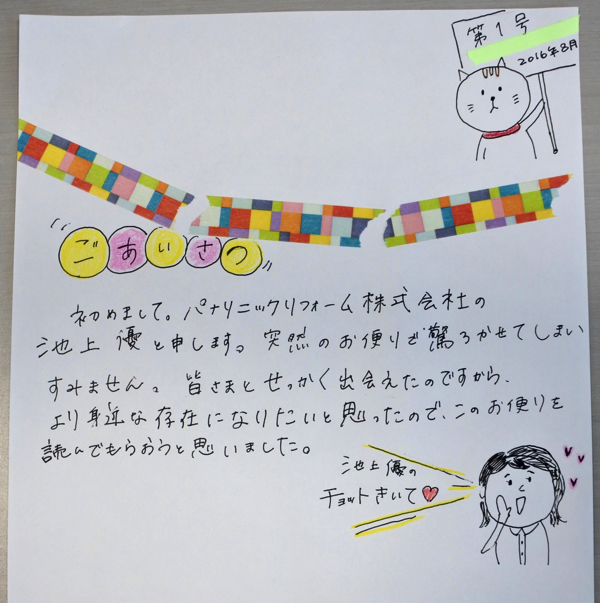 第1号
2016年8月
ごあいさつ
初めまして。パナソニックリフォーム株式会社の
池上 優と申します。突然のお便りで驚ろかせてしまい
すみません。皆さまとせっかく出会えたのですから、
より身近な存在になりたいと思ったので、このお便りを
読んでもらおうと思いました。
池上優の
チョットきいて♥